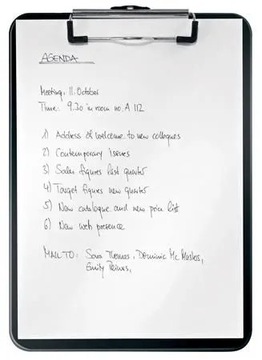 AGENDA
Meeting: 11. October
Time: 9.30 in room no. A 112
1) Address of welcome to new collegues
2) Contemporary issues
3) Sales figures last quarter
4) Target figures new quarter
5) New catalogue and new price list
6) New web presence
MAIL TO: Sara Thomas, Dominic Mc
Emily